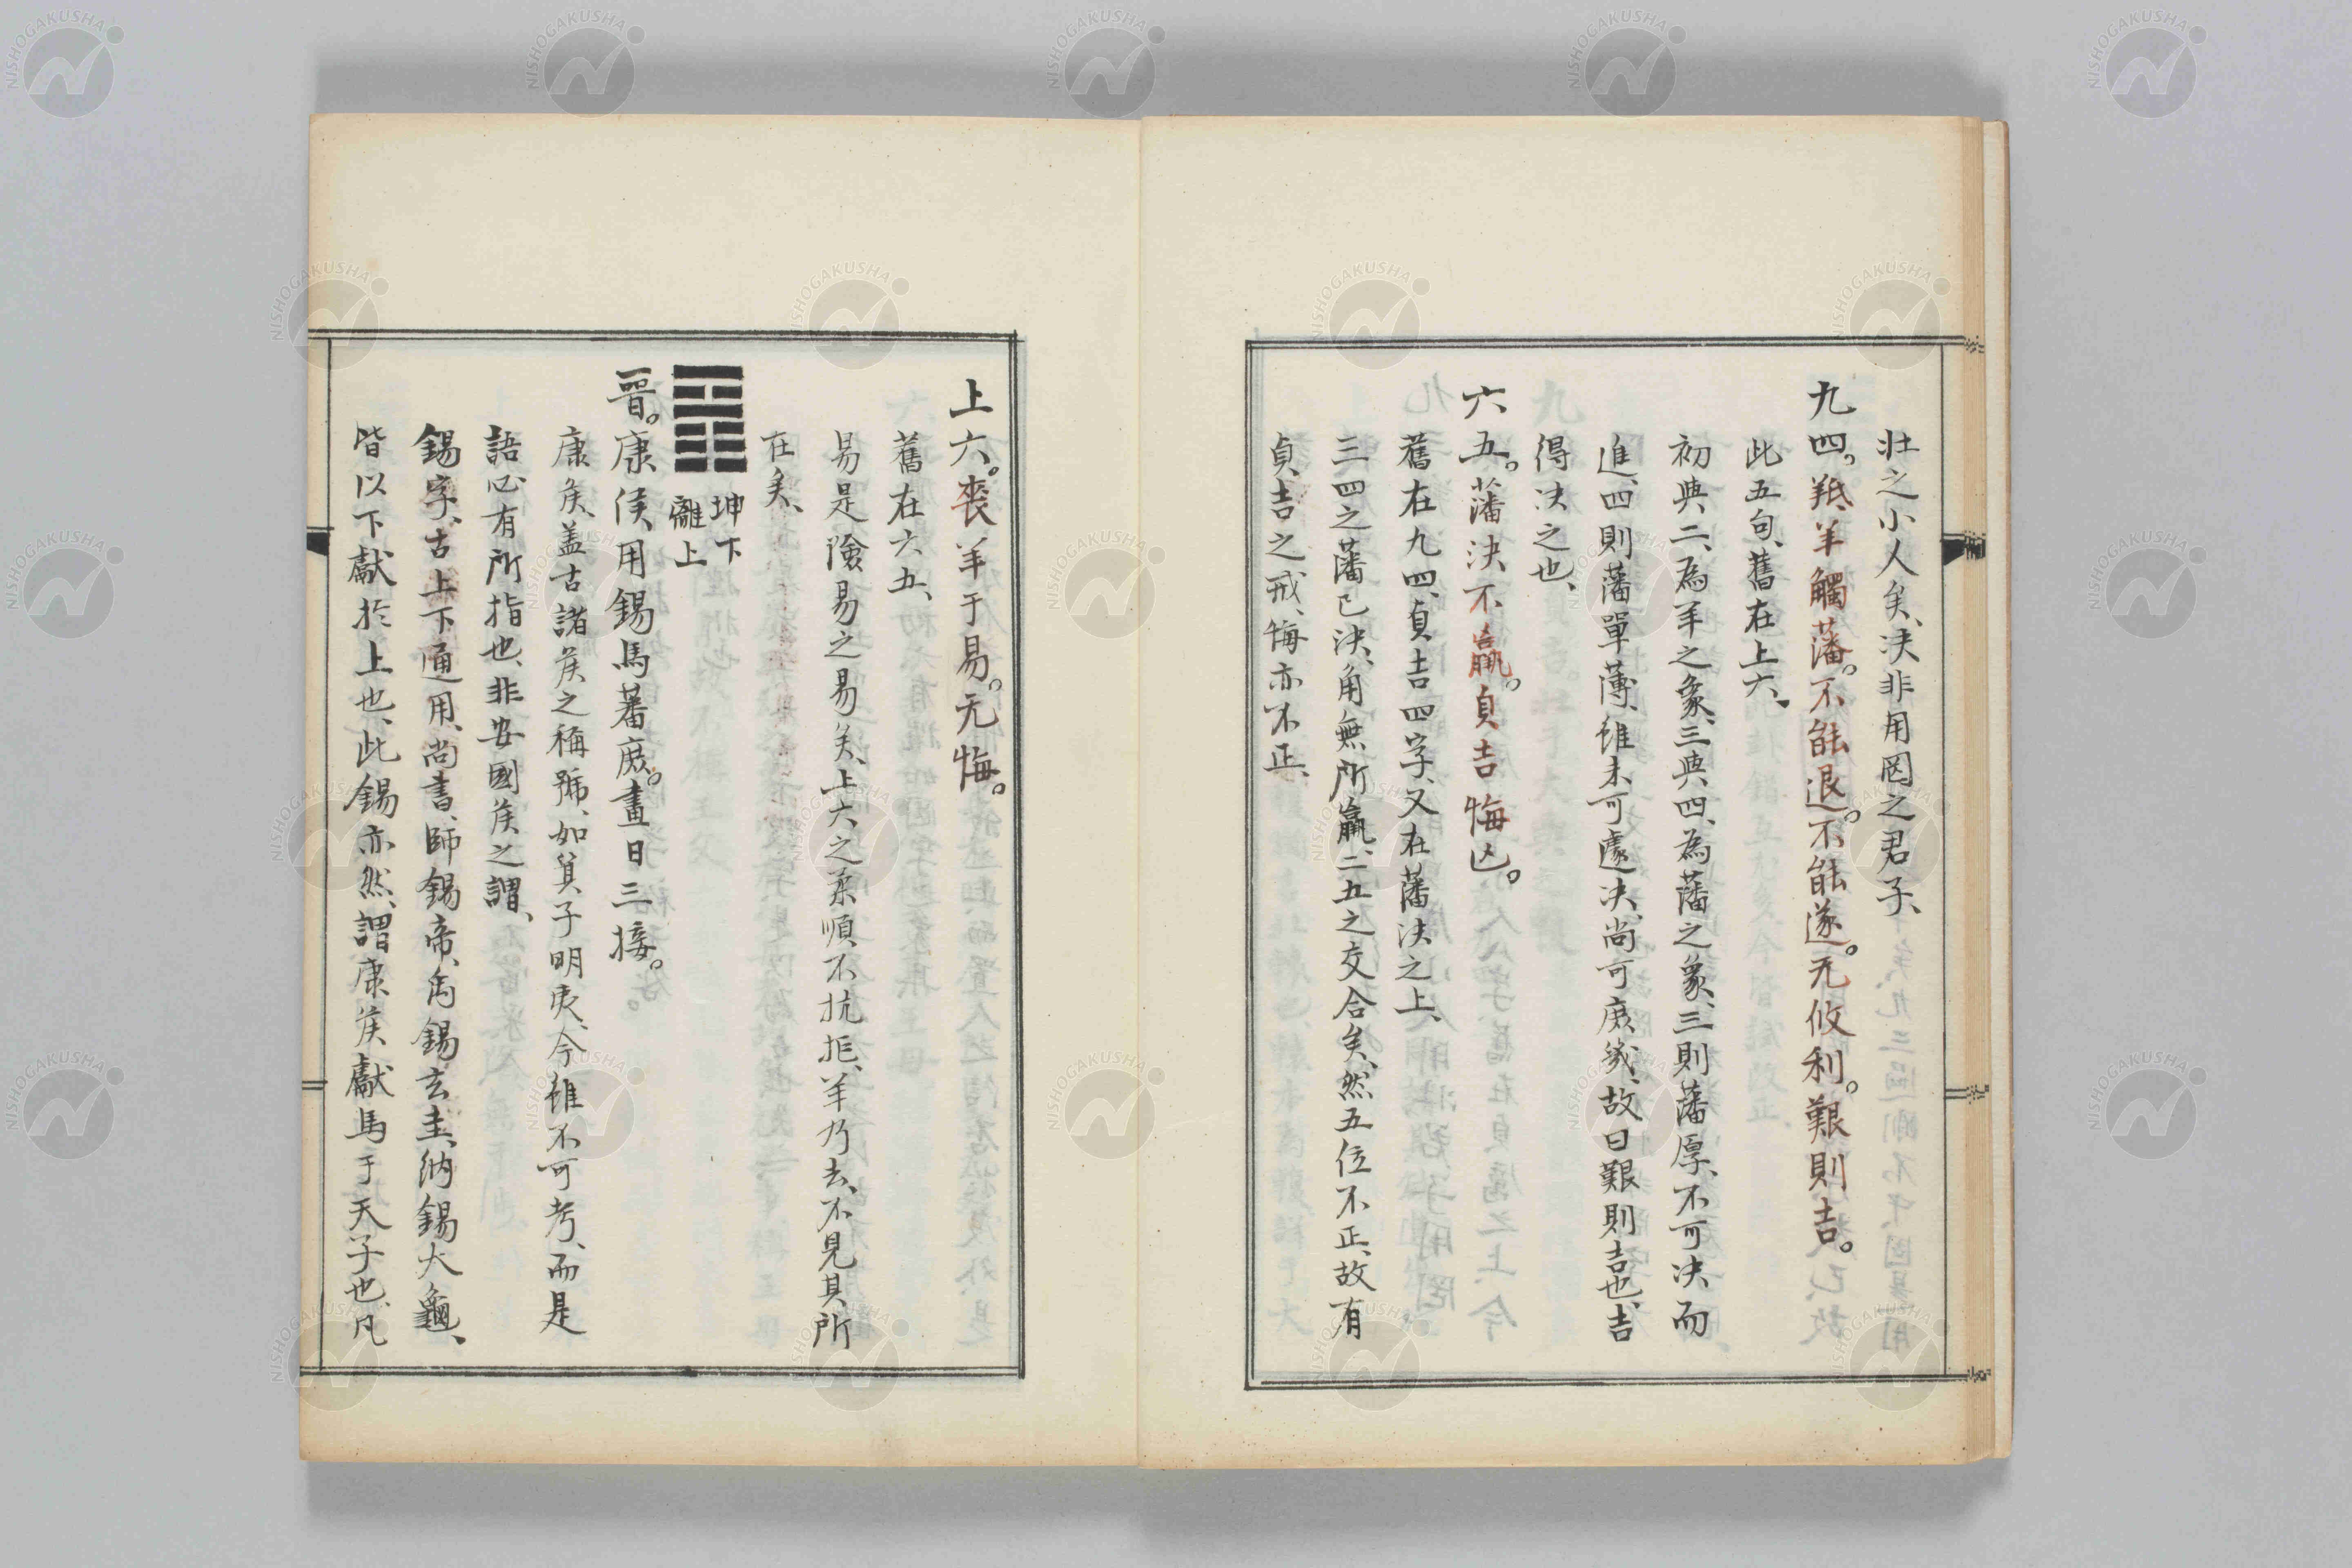 壯之小人矣、決非用罔之君子、
九四。羝羊觸藩。不能退。不能遂。无攸利。艱則吉。
此五句、舊在上六、
初與二、為羊之象、三與四、為藩之象、三則藩厚、不可決、而
進、四則藩單薄、雖未可遽決、尚可庶幾、故曰艱則吉也、吉
得決之也、
六五。藩決不羸。貞吉悔凶。
舊在九四、貞吉四字、又在藩決之上、
三四之藩已決、角無所羸、二五之交合矣、然五位不正、故有
貞吉之戒、悔亦不正、
上六。喪羊于易。无悔。
舊在六五、
易是險易之易矣、上六之柔順、不抗拒、羊乃去、不見其所
在矣、
坤下
離上
晉。康侯、用錫馬蕃庶。晝日三接。
康矦、盖古諸矦之稱號、如箕子明夷、今雖不可考、而是
語必有所指也、非安國矦之謂、
錫字、古上下通用、尚書、師錫帝、禹錫玄圭、納錫大龜、
皆以下獻於上也、此錫亦然、謂康矦獻馬于天子也、凡
NISHOGAKUSHA